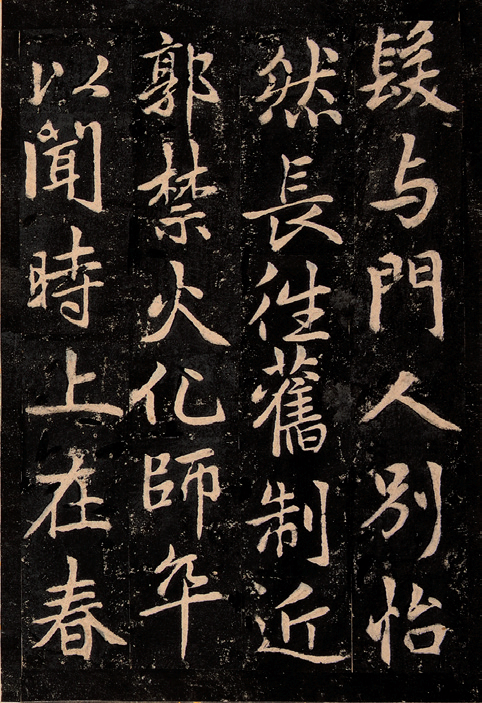 疑与門人別怡
然長往舊制近
郭禁火化師卒
以聞時上在春